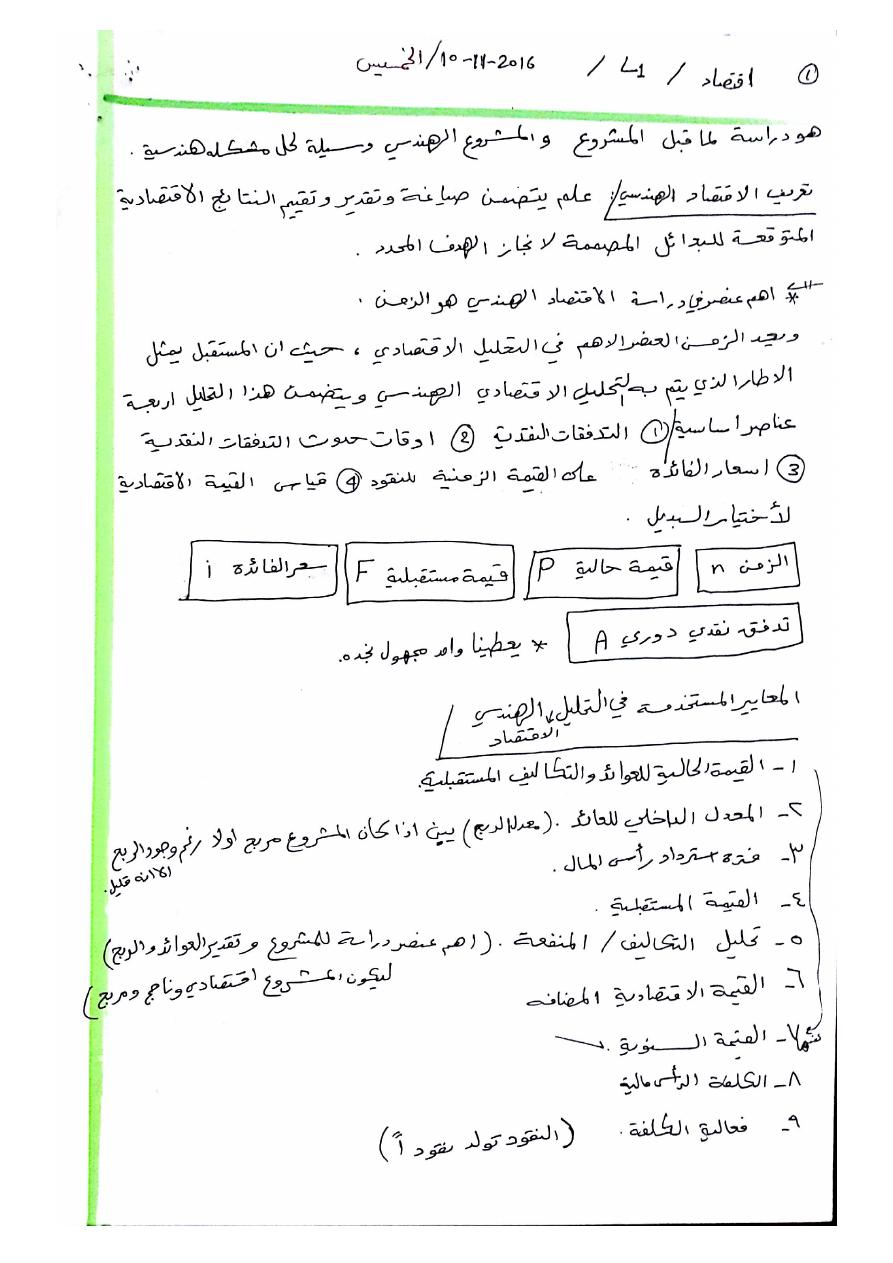 ① اقتصاد / L1 / 10-11-2016/الخميس
هو دراسة لما قبل المشروع والمشروع الهندسي وسيلة لحل مشكله هندسية .
تعريف الاقتصاد الهندسي/: علم يتضمن صياغة وتقدير وتقييم النتائج الاقتصادية
المتوقعة للبدائل المصممة لانجاز الهدف المحدد .
* اهم عنصر في دراسة الاقتصاد الهندسي هو الزمن .
ويعد الزمن العنصر الاهم في التحليل الاقتصادي ، حيث ان المستقبل يمثل
الاطار الذي يتم به التحليل الاقتصادي الهندسي ويتضمن هذا التحليل اربعة
عناصر اساسية/ ① التدفقات النقدية ② اوقات حدوث التدفقات النقدية
③ اسعار الفائدة على القيمة الزمنية للنقود ④ قياس القيمة الاقتصادية
لأختيار البديل .
الزمن n قيمة حالية P قيمة مستقبلية F سعر الفائدة i
تدفق نقدي دوري A * يعطينا واحد مجهول نجده.
المعايير المستخدمة في التحليل الهندسي /
الاقتصاد
١- القيمة الحالية للعوائد والتكاليف المستقبلية.
٢- المعدل الداخلي للعائد . (معدل الربح) يبين اذا كان المشروع مربح اولا رغم وجود الربح
الا انه قليل.
٣- فترة استرداد رأس المال .
٤- القيمة المستقبلية .
٥- تحليل التكاليف / المنفعة . (اهم عنصر دراسة للمشروع وتقدير العوائد والربح)
ليكون المشروع اقتصادي وناجح ومربح)
٦- القيمة الاقتصادية المضافه
٧- القيمة السنوية .
٨- الكلفة الرأس مالية
٩- فعالية الكلفة . (النقود تولد نقود اً)